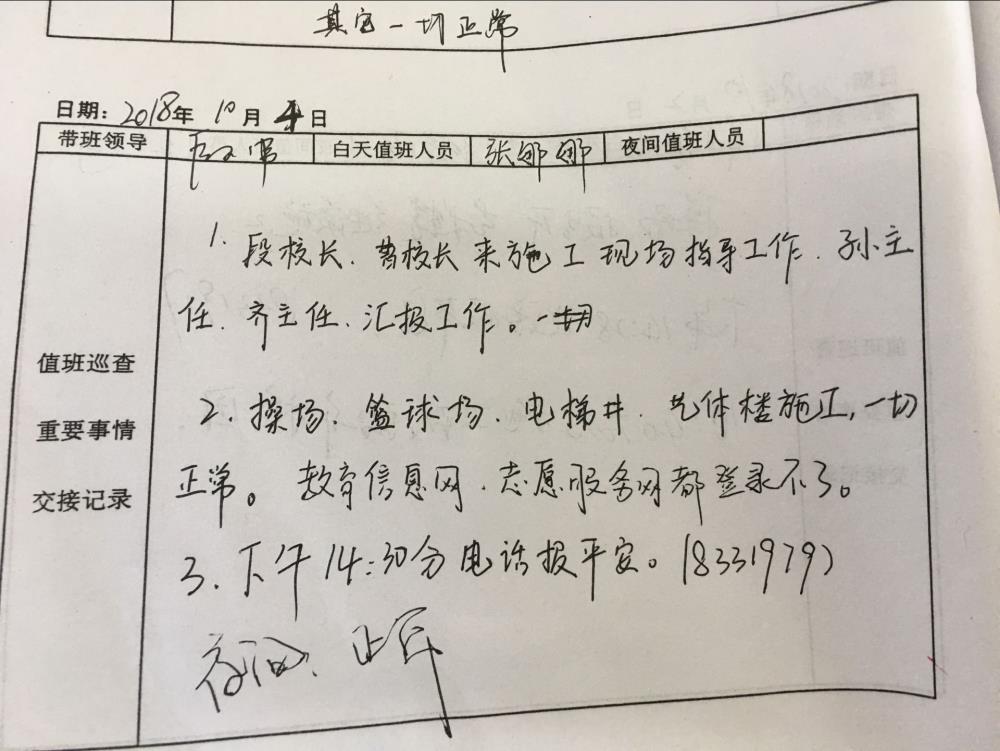 其它一切正常
日期：2018年 10月 4日
带班领导 白天值班人员 张娜娜 夜间值班人员
1. 段校长、曹校长来施工现场指导工作、孙主
任、齐主任、汇报工作。一切
值班巡查
2. 操场、篮球场、电梯井、艺体楼施工,一切
重要事情
正常。教育信息网、志愿服务网都登录不了。
交接记录
3、下午14:30分电话报平安。(8331979)
夜间、正常